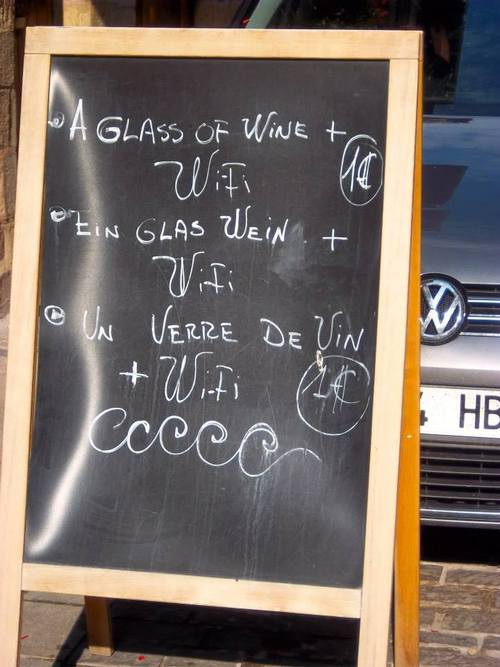 A GLASS OF WINE +
WiFi 1€
EIN GLAS WEIN +
WiFi
UN VERRE DE VIN
+ WiFi 1€
VW
HB